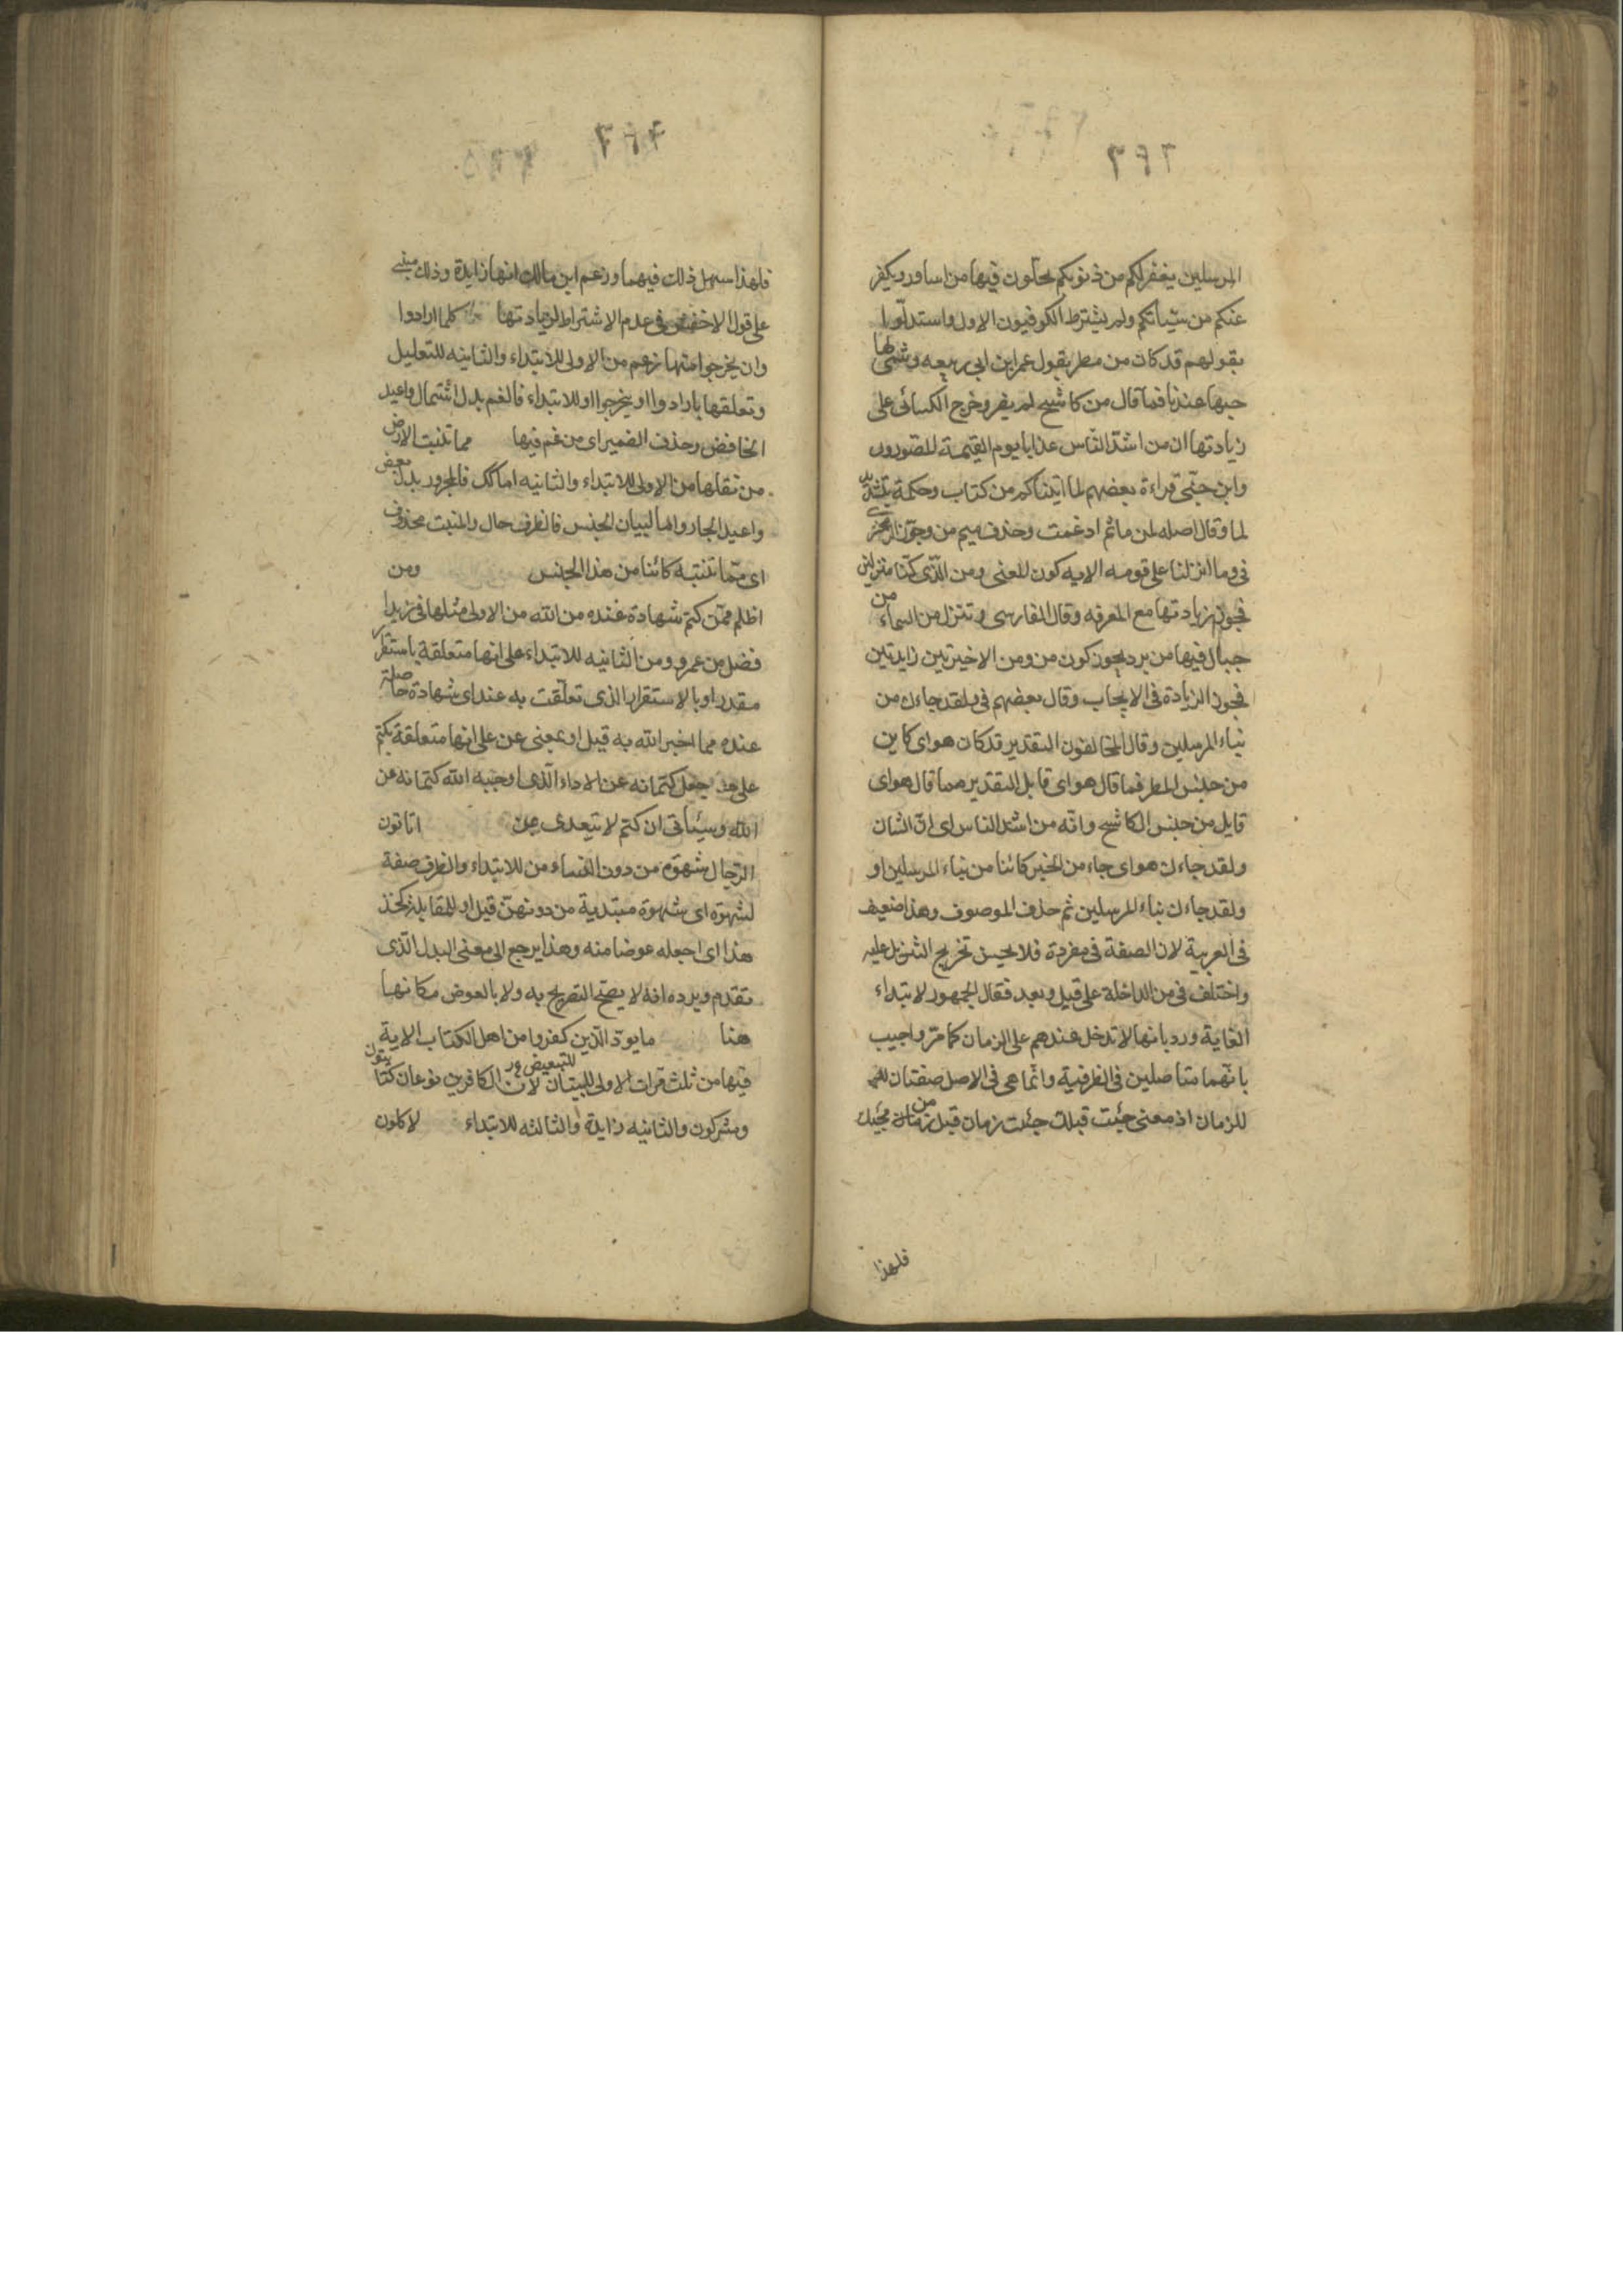 المرسلين يغفر لكم من ذنوبكم يحلون فيها من اساور ويكفر
عنكم من سيأتكم ولم يشترط الكوفيون الاول واستدلوا
بقولهم قد كان من مطر بقول عمر ابن ابي ربيعه وينمى لها
حبها عندنا فما قال من كاشح لم يضر وخرج الكسائى على
زيادتها ان من اشد الناس عذابا يوم القيمة المصورون
وابن جنى قراءة بعضهم لما اتيتكم من كتاب وحكمة بتشديد
لما وقال اصله لمن ما ثم ادغمت وحذف ميم من وجوز الزمخشرى
فى وما انزلنا على قومه الايه كون المعنى ومن الذى كنا منزلين
فجوز زيادتها مع المعرفه وقال الفارسى وتنزل من السماء من
جبال فيها من برد يجوز كون من ومن الاخيرتين زايدتين
فجوز الزيادة فى الايجاب وقال بعضهم فى ولقد جاءك من
نباء المرسلين وقال المخالفون التقدير قد كان هو اى كاين
من جنس المطر فما قال هو اى قايل التقدير مما قال هو اى
قايل من جنس الكاشح وانه من اشد الناس اى ان الشان
ولقد جاءك هو اى جاء من الخبر كائنا من نباء المرسلين او
ولقد جاءك نباء المرسلين ثم حذف الموصوف وهذا ضعيف
فى العربية لان الصفة فى مفردة فلا يحسن تخريج التنزيل عليه
واختلف فى من الداخلة على قبل وبعد فقال الجمهور لابتداء
الغاية ورد بانها لا تدخل عندهم على الزمان كما مر واجيب
بانهما متاصلين فى الظرفية وانما هى فى الاصل صفتان
للزمان اذ معنى جئت قبلك جئت زمان قبل من زمان مجيئك
فلهذا
فلهذا سهل ذلك فيهما وزعم ابن مالك انها زايدة وذلك مبنى
على قول الاخفش فى عدم الاشتراط لزيادتها كلما ارادوا
وان يخرجوا منها زعم من الاولى للابتداء والثانيه للتعليل
وتعلقها بارادوا او يخرجوا او للابتداء فالغم بدل اشتمال واعيد
الخافض وحذف الضمير اى من غم فيها مما تنبت الارض
من بقلها من الاولى للابتداء والثانيه اما كك فالمجرور بدل بعض
واعيد الجار واما لبيان الجنس فالظرف حال والمنبت محذوف
اى مما تنبته كائنا من هذا الجنس ومن
اظلم ممن كتم شهادة عنده من الله من الاولى مثلها فى زيد
افضل من عمرو ومن الثانيه للابتداء على انها متعلقة باستقرار
مقدر او بالاستقرار الذى تعلقت به عند اى شهادة حاصلة
عنده مما اخبر الله به قيل او بمعنى عن على انها متعلقة بكتم
على جعل كتمانه عن الاداء الذى اوجبه الله كتمانه عن
الله وسيأتى ان كتم لا يتعدى بمن اتاتون
الرجال شهوة من دون النساء من للابتداء والظرف صفة
لشهوة اى شهوة مبتدية من دونهن قيل او للمقابلة كخذ
هذا اى اجعله عوضا منه وهذا يرجع الى معنى البدل الذى
تقدم ويرده انه لا يصح التصريح به ولا بالعوض مكانها
هنا ما يود الذين كفروا من اهل الكتاب الاية
فيها من ثلث مرات الاولى للبيان لان الكافرين نوعان كتابيون
ومشركون والثانيه زايدة والثالثه للابتداء لاكلون